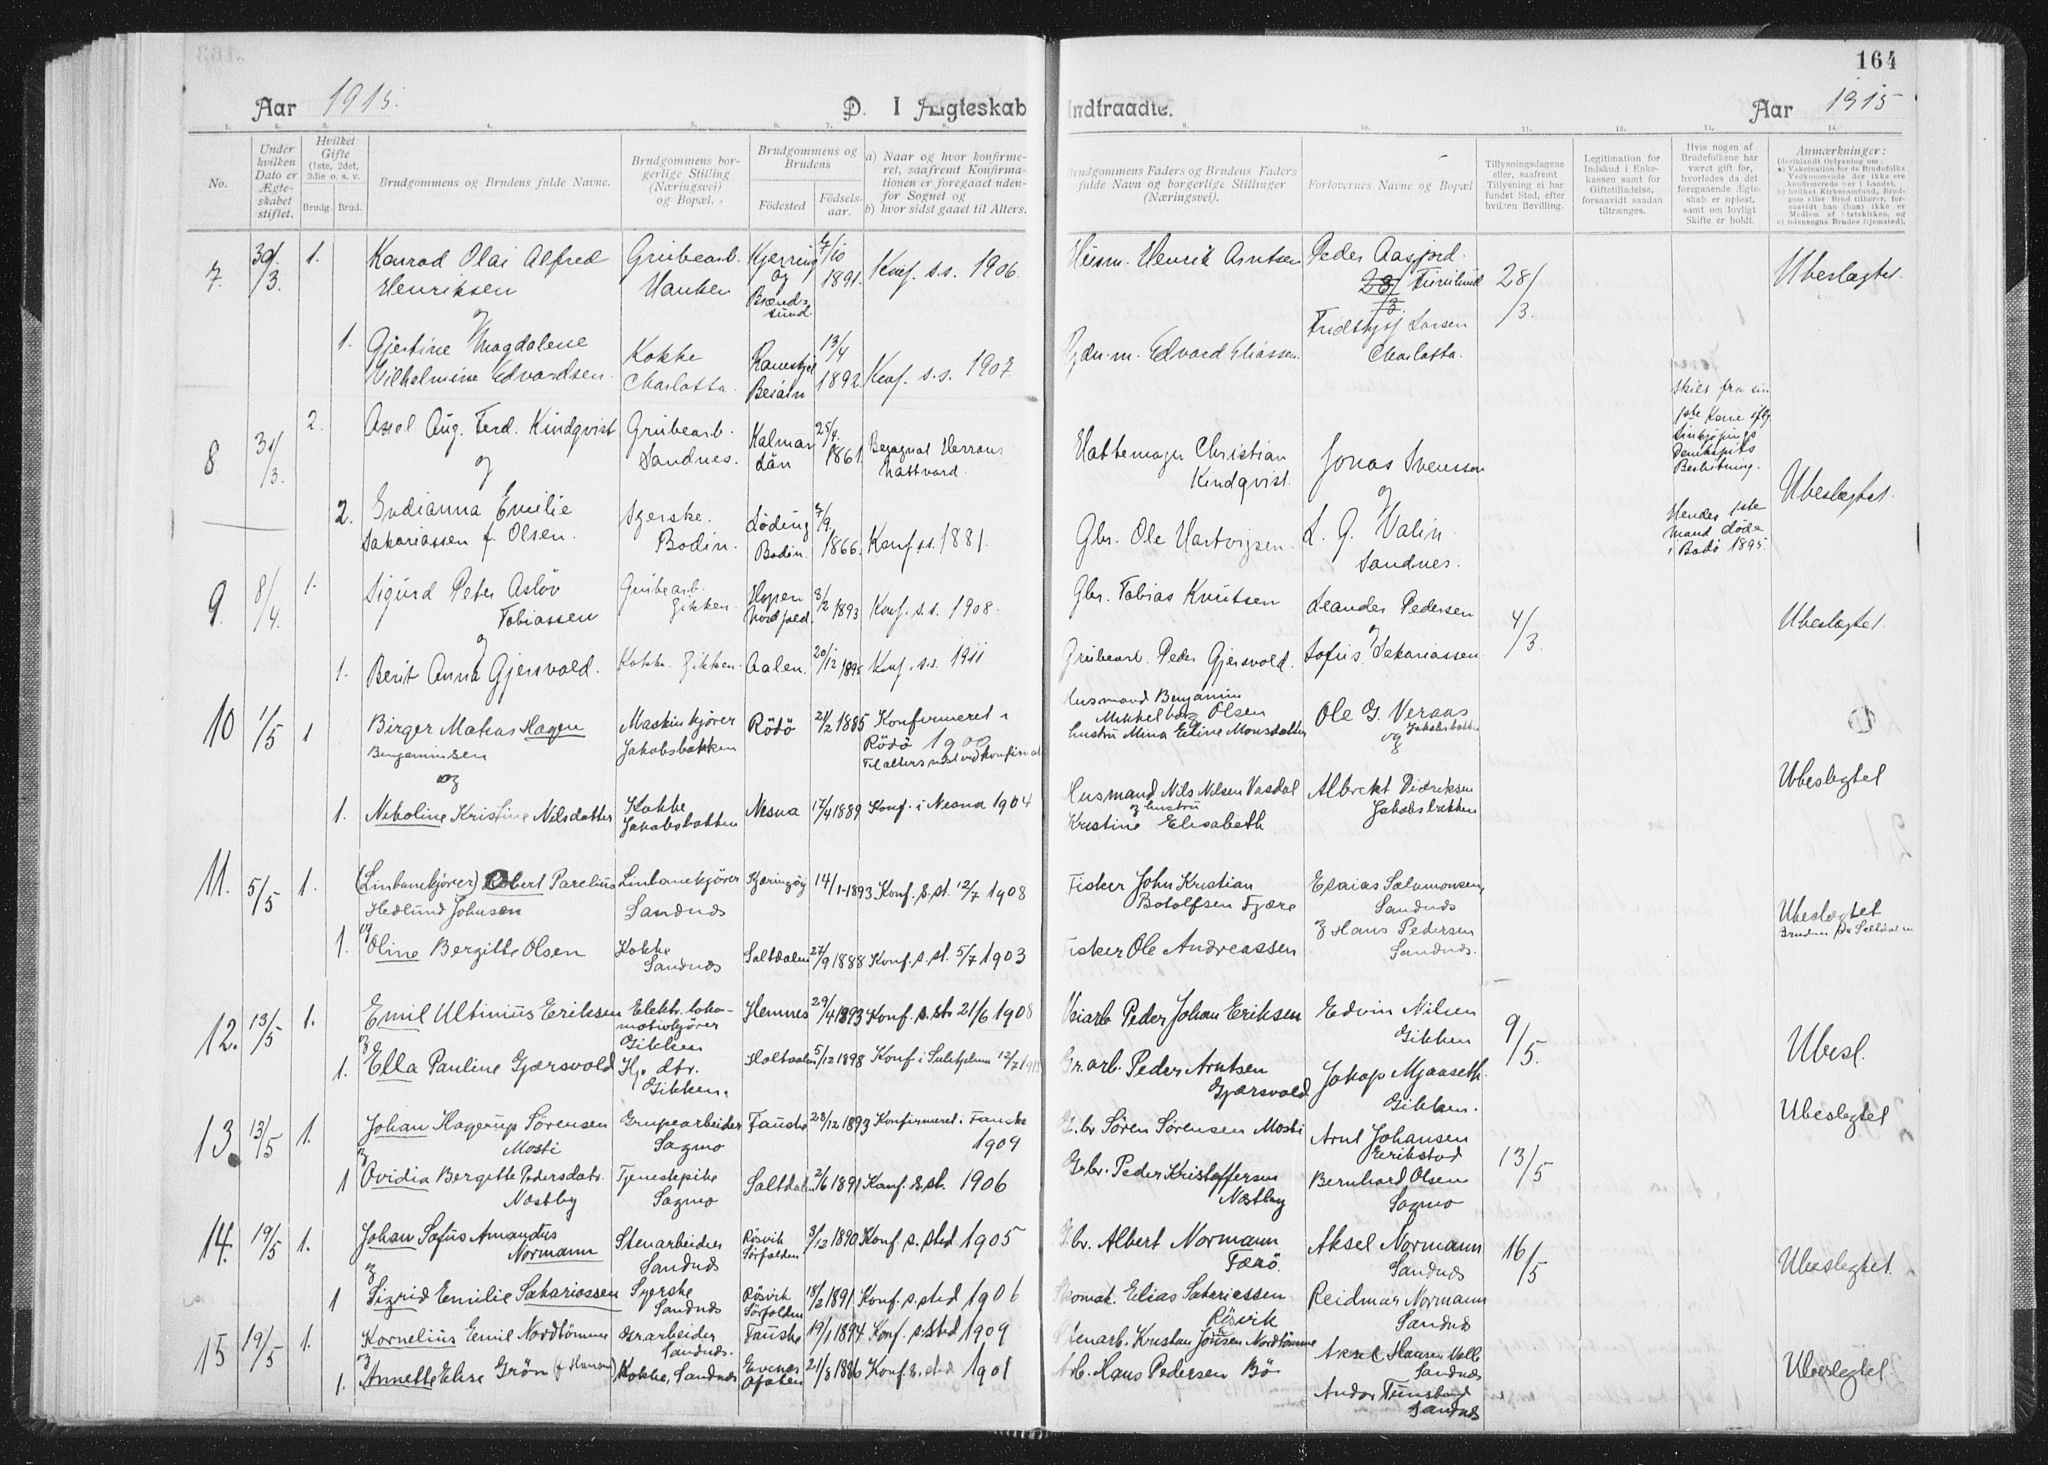 164
Aar 1915.
D. I Ægteskab Indtraadte.
Aar 1915
1. 2. 3. 4. 5. 6. 7. 8. 9. 10. 11. 12. 13. 14.
No.
Under hvilken Dato er Ægteskabet stiftet.
Hvilket Gifte (1ste, 2det, 3die o. s. v.
Brudg. Brud.
Brudgommens og Brudens fulde Navne.
Brudgommens borgerlige Stilling (Næringsvei) og Bopæl.
Brudgommens og Brudens
Födested
Födselsaar.
a) Naar og hvor konfirmeret, saafremt Konfirmationen er foregaaet udenfor Sognet og
b) hvor sidst gaaet til Alters.
Brudgommens Faders og Brudens Faders fulde Navn og borgerlige Stillinger (Næringsvei).
Forlovernes Navne og Bopæl
Tillysningsdagene eller, saafremt Tillysning ei har fundet Sted, efter hvilken Bevilling.
Legitimation for Indskud i Enkekassen samt for Giftetilladelse, forsaavidt saadan tiltrænges.
Hvis nogen af Brudefolkene har været gift før, hvorledes da det foregaaende Ægteskab er opløst, samt om lovligt Skifte er holdt.
Anmærkninger:
7. 30/3. 1. Konrad Olai Alfred Henriksen Grubearb. Hanken Kjerringø 7/10 1891. Konf. s.s. 1906. Husm. Henrik Arntsen Peder Aasjord. Furulund 28/3. Ubeslægtet.
og
1. Gjertine Magdalene Vilhelmine Edvardsen Kokke Charlotta. Beiarn 13/4 1892. Konf. s.s. 1907. Edvard Eliassen. Fridthjof Larsen Charlotta.
8 31/3. 2. Axel Aug. Ferd. Kindqvist Grubearb. Sandnes. Kalmar Län 25/4. 1861. Hattemager Christian Kindqvist. Jonas Svensson
skilt fra sin 1ste Kone
Ubeslægtet.
og
2. Indianna Emilie Sakariassen f. Olsen. Syerske. Bodin. Løding Bodin. 7/9. 1866. Konf. s.s. 1881. Gbr. Ole Hartvigsen. L. G. Valin. Sandnes.
Hendes 1ste Mand døde i Bodø 1895.
9. 8/4. 1. Sigurd Peter Asløv Tobiassen Grubearb. Gikken. Hopen Nordfold. 3/2 1893 Konf. s.s. 1908. Gbr. Tobias Knutsen Leander Pedersen 4/3. Ubeslægtet.
og
1. Berit Anna Gjersvold. Kokke. Gikken. Aalen. 20/12 1895 Konf. s.s. 1911 Grubearb. Peder Gjersvold. Sofus Sakariassen.
10 1/5 1 Birger Matias Hagen Benjaminsen Maskinkjører Jakobsbakken Rödö 21/2 1885 Konfirmeret i Rödö 1900 Husmand Benjamin Mikkelborg Olsen Hustru Mina Eline Monsdatter Ole G. Veraas Jakobsbakken
og
1. Nikoline Kristine Nilsdatter Kokke Jakobsbakken Nesna 17/4 1889 Konf. i Nesna 1904 Husmand Nils Nilsen Vasdal og hustru Kristine Elisabeth Albrekt Didriksen Jakobsbakken Ubeslegtet
11. 5/5 1. (Linbanekjører) Robert Parelius Hedlund Johnsen Linbanekjører Sandnes Kjæringöy 14/1-1893 Konf. s. st. 12/7 1908 Fisker John Kristian Botolfsen Fjære Esaias Salamonsen Sandnes
og
1. Oline Bergitte Olsen Kokke Sandnes Saltdalen 27/9 1888 Konf. s. st. 5/7 1903 Fisker Ole Andreassen Hans Pedersen Sandnes. Ubeslægtet
12. 13/5 1. Emil Ultinius Eriksen Elektr. lokomotivkjører Gikken Hemnes 29/4 1893 Konf. s. st. 21/6 1908 Veiarb. Peder Johan Eriksen Edvin Nilsen Gikken 9/5. Ubesl.
1. Ella Pauline Gjærsvold Hj. dtr. Gikken. Holtaalen 5/12 1898 Konf i Sulitjelma 12/7 1913 Gr. arb. Peder Arntsen Gjærsvold Jakop Mjaaseth. Gikken.
13. 13/5 1. Johan Hagerup Sörensen Mosti Grupearbeider Sagmo Fauske 28/12 1893 Konfirmeret i Fauske 1909 G. br Sören Sörensen Mosti Arnt Johansen Erikstad 13/5 Ubeslegtet
1 Ovidia Bergette Pedersdatr. Næstby Tjenestepike Sagmo Saltdalen 2/6 1891 Konf. s. st. 1906 G. br. Peder Kristoffersen Næstby Bernhard Olsen Sagmo
14. 19/5 1. Johan Sofus Amandus Normann Stenarbeider Sandnes Rösvik Sörfolden 3/12 1890 Konf. s. sted 1905 G. br. Albert Normann Færö. Aksel Normann Sandnes 16/5 Ubeslegtet.
1 Sigrid Emilie Sakariassen Syerske Sandnes Rösvik Sörfolden 18/2 1891 Konf. s. sted 1906 Skomak. Elias Sakariassen Rösvik Reidmar Normann Sandnes
15 19/5 1. Kornelius Emil Nordtömme Sandnes. Fauske 19/1 1894 Konf. s. sted 1909 Stenarb. Kristan Jonsen Nordtömme Aksel Hansen Valb Sandnes Ubeslegtet.
1. Annette Elise Grön Kokke, Sandnes Evenes Ofoten 21/8 1886 Konf. s. sted 1901 Arb. Hans Pedersen Bö Andor Sandnes